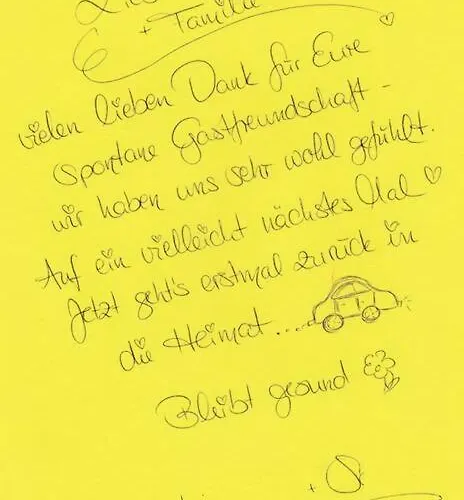 + Familie
vielen lieben Dank für Eure
spontane Gastfreundschaft -
wir haben uns sehr wohl gefühlt.
Auf ein vielleicht nächstes Mal ♡
Jetzt geht's erstmal zurück in
die Heimat....
Bleibt gesund
+